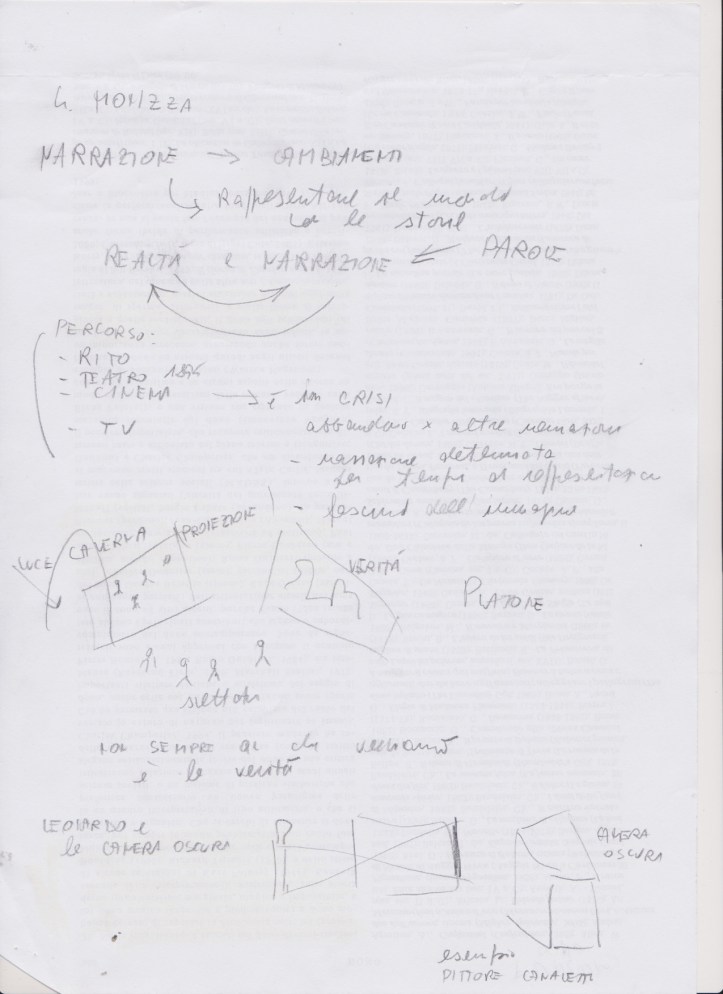 NARRAZIONE → CAMBIAMENTI
Rappresentare
le storie
REALTÁ e NARRAZIONE ⇐ PAROLE
PERCORSO:
- RITO
- TEATRO
- CINEMA → è in CRISI
abbandono x altre narrazioni
- TV
- narrazione determinata
tempi di rappresentazione
- fascino dell'immagine
LUCE CAVERNA PROIEZIONE
VERITÁ
PLATONE
NON SEMPRE che vediamo
è la veritá
LEONARDO e
la CAMERA OSCURA
CAMERA
OSCURA
esempio
PITTORE CANALETTO